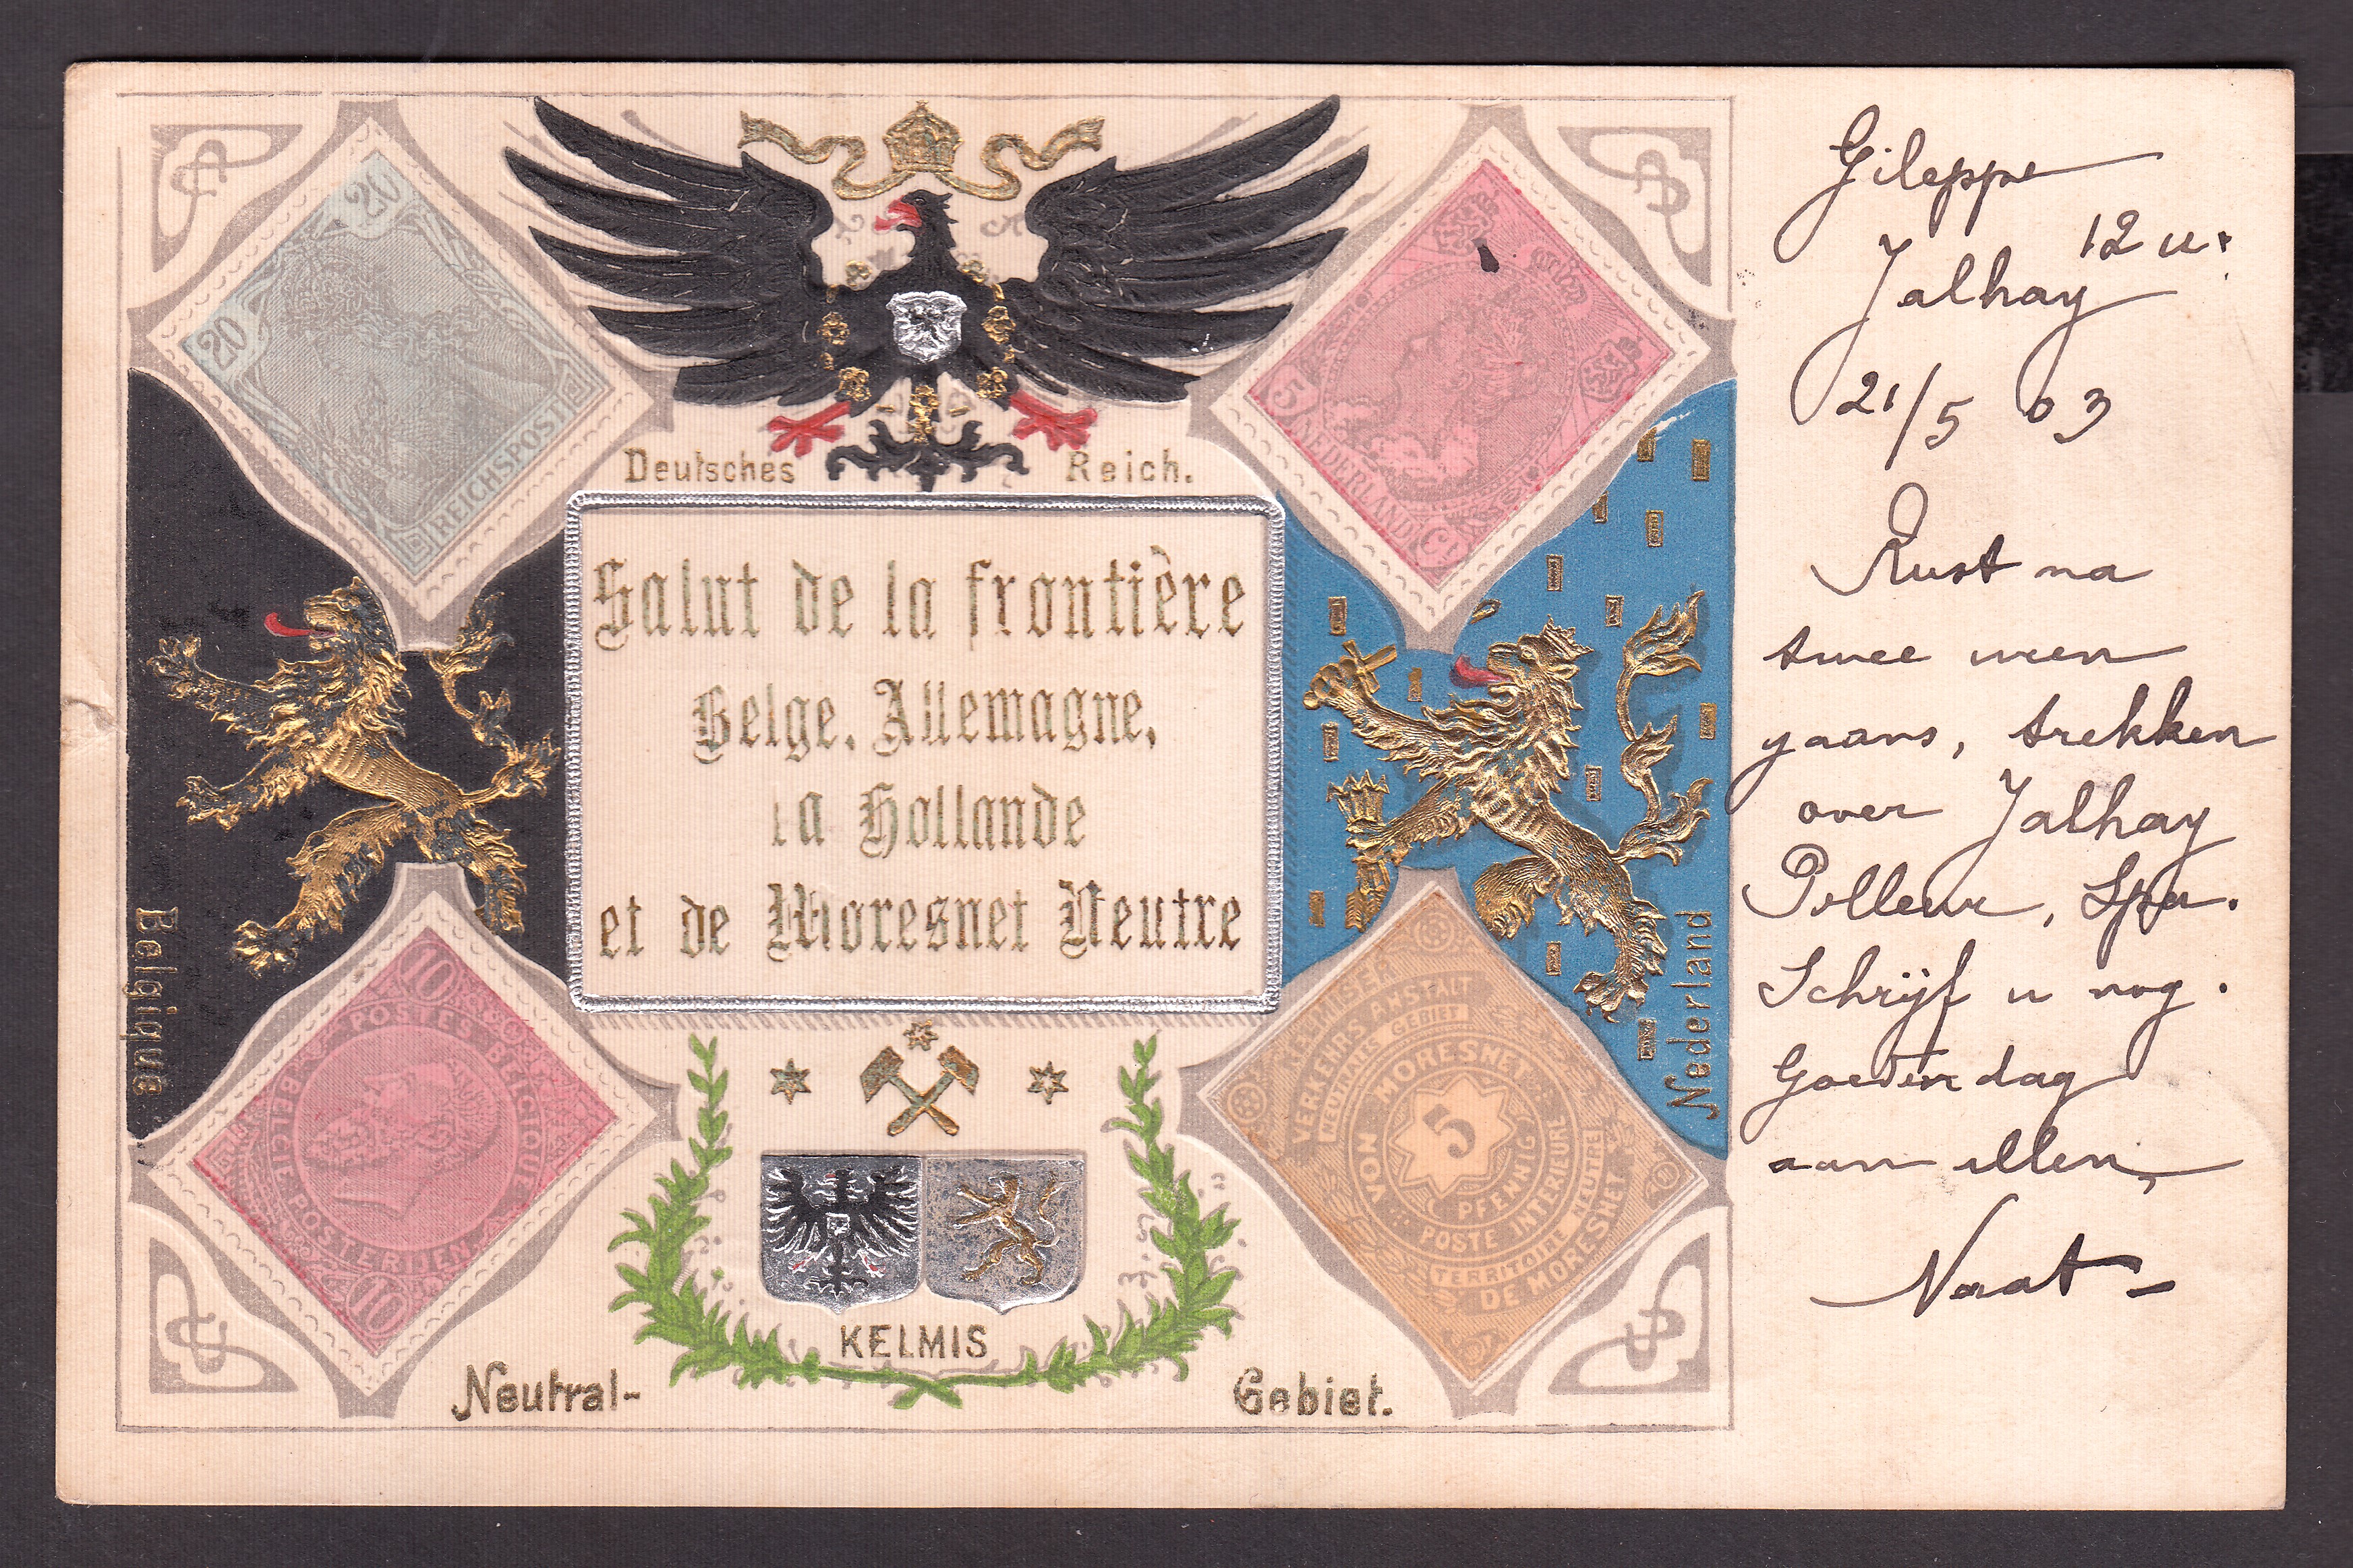 20
20
REICHSPOST
Deutsches Reich.
5
NEDERLAND
Salut de la frontière
Belge, Allemagne,
la Hollande
et de Moresnet Neutre
Belgique
Nederland
10
POSTES BELGIQUE
BELGIE POSTERIJEN
10
KELMISER
VERKEHRS-ANSTALT
NEUTRALES GEBIET
VON MORESNET
5
PFENNIG
POSTE INTERIEURE
TERRITOIRE NEUTRE
DE MORESNET
KELMIS
Neutral-
Gebiet.
Gileppe
12 u.
Jalhay
21/5 03
Rust na
twee uren
gaans, trekken
over Jalhay
Polleur, Spa.
Schrijf u nog.
Goeden dag
aan allen,